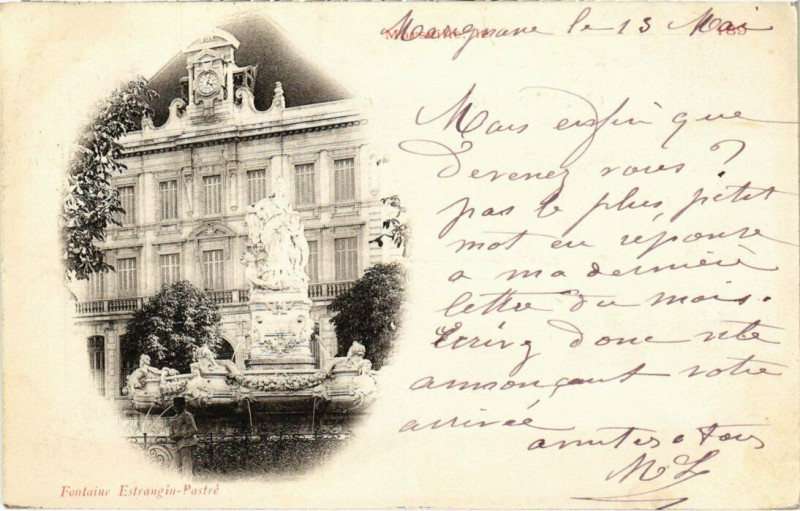 Marignane le 13 Mai
Marseille, le 189
Mais enfin que
devenez vous ?
pas le plus petit
mot en réponse
a ma dernière
lettre du mois.
Ecrivez donc vite
annonçant votre
arrivée
amities a tous
M L
Fontaine Estrangin-Pastré